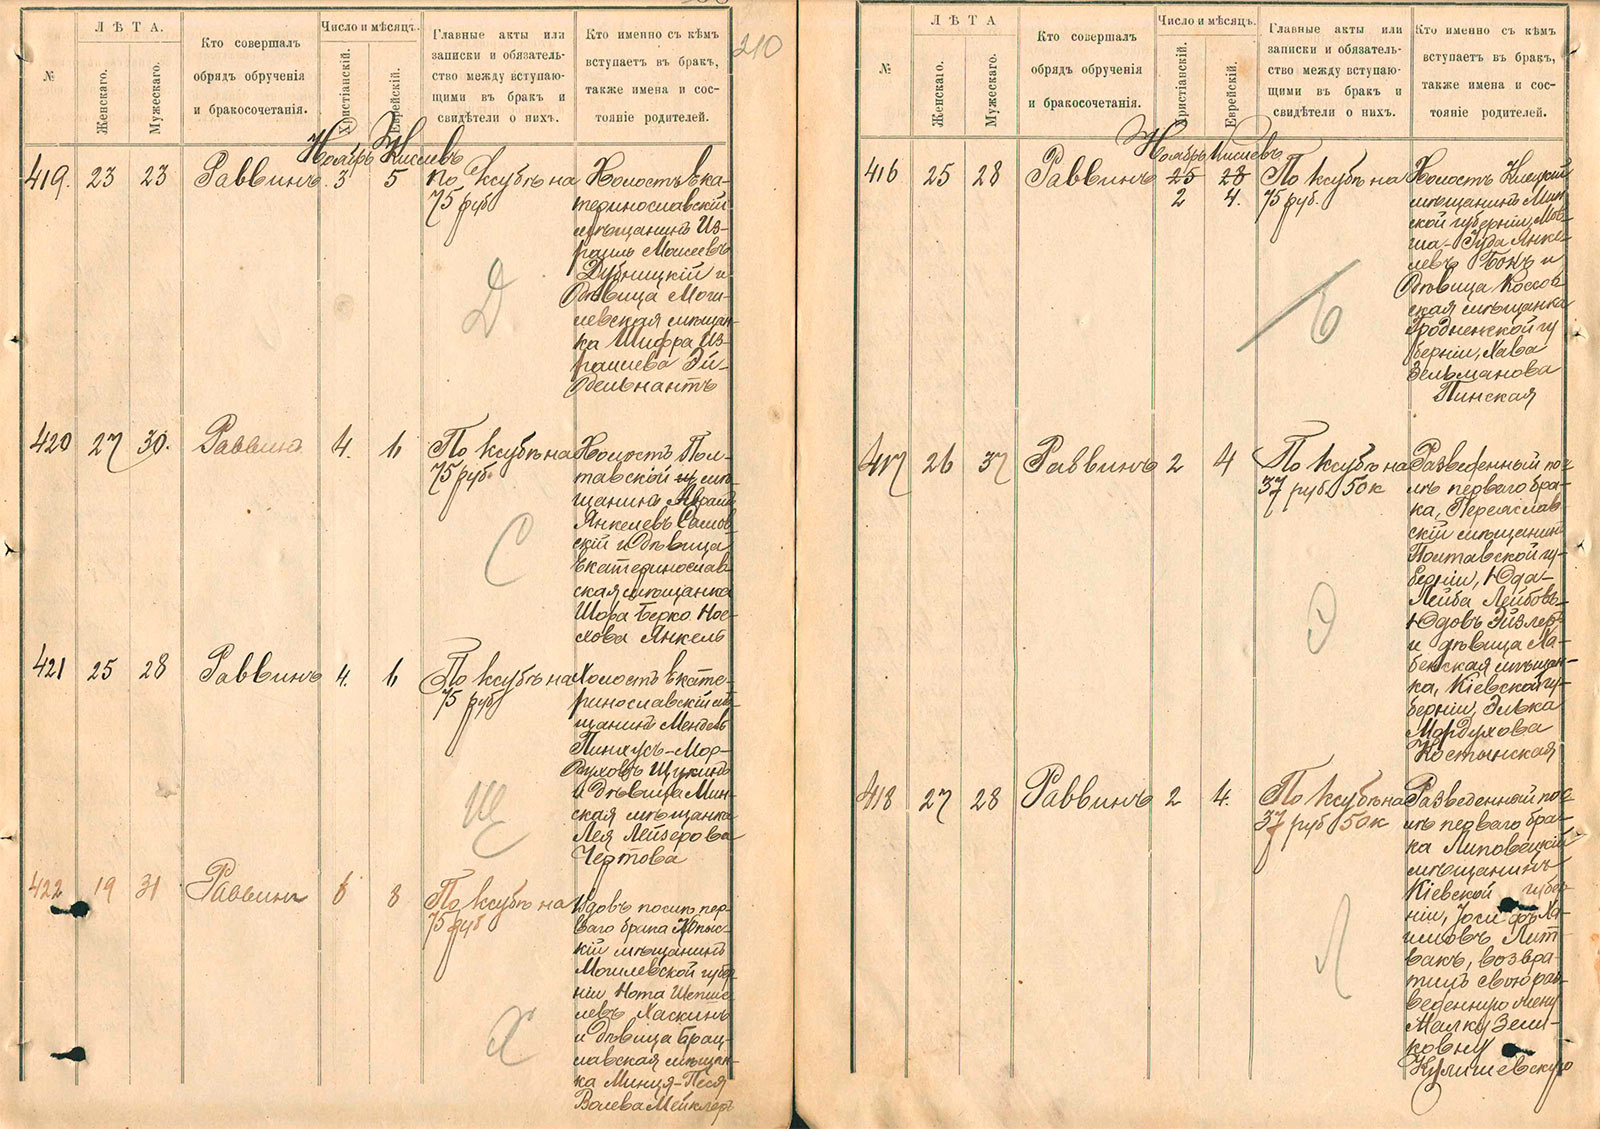 210
№
ЛѢТА.
Женскаго.
Мужескаго.
Кто совершалъ
обрядъ обрученія
и бракосочетанія.
Число и мѣсяцъ.
Христіанскій.
Еврейскій.
Главные акты или
записки и обязатель-
ство между вступаю-
щими въ бракъ и
свидѣтели о нихъ.
Кто именно съ кѣмъ
вступаетъ въ бракъ,
также имена и сос-
тояніе родителей.
Ноябрь Кислевъ
419. 23 23 Раввинъ 3 5
По ксубѣ на
75 руб.
Холостъ Ека-
теринославскій
мѣщанинъ Из-
раиль Моисеевъ
Дубницкій и
дѣвица Моги-
левская мѣщан-
ка Шифра Из-
раилева Эй-
дельнантъ
Д
420 27 30. Раввинъ 4. 6
По ксубѣ на
75 руб.
Холостъ Пол-
тавскій мѣ-
щанинъ Абрамъ
Янкелевъ
скій и дѣвица
Екатеринослав-
ская мѣщанка
Шора Берко Нос-
хова Янкель
С
421 25 28 Раввинъ 4. 6
По ксубѣ на
75 руб
Холостъ Екате-
ринославскій мѣ-
щанинъ Мендель
Пинхусъ-Мор-
духовъ Щукинъ
и дѣвица Мин-
ская мѣщанка
Лея Лейзерова
Чертова
Щ
422 19 31 Раввинъ 6 8
По ксубѣ на
75 руб
Вдовъ послѣ пер-
ваго брака Копыс-
кій мѣщанинъ
Могилевской губер-
ніи Нота Шепше-
левъ Хаскинъ
и дѣвица Брац-
лавская мѣщан-
ка Минця-Песя
Волева Мейклеръ
Х
№
ЛѢТА
Женскаго.
Мужескаго.
Кто совершалъ
обрядъ обрученія
и бракосочетанія.
Число и мѣсяцъ.
Христіанскій.
Еврейскій.
Главные акты или
записки и обязатель-
ство между вступаю-
щими въ бракъ и
свидѣтели о нихъ.
Кто именно съ кѣмъ
вступаетъ въ бракъ,
также имена и сос-
тояніе родителей.
Ноябрь Кислевъ
416 25 28 Раввинъ 25 28
2 4.
По ксубѣ на
75 руб.
Холостъ Клецкій
мѣщанинъ Мин-
ской губерніи, Мов-
ша-Іуда Янке-
левъ Бонъ и
дѣвица Коссов-
ская мѣщанка
Гродненской гу-
берніи, Хава
Зельманова
Пинская
Б
417 26 37 Раввинъ 2 4
По ксубѣ на
37 руб. 50 к
Разведенный пос-
лѣ перваго бра-
ка, Переяслав-
скій мѣщанинъ
Полтавской гу-
берніи, Юда-
Лейба Лейбовъ-
Юдовъ Эйзлеръ
и дѣвица Ха-
бенская мѣщан-
ка, Кіевской гу-
берніи, Элька
Мордухова
Костынская
Э
418 27 28 Раввинъ 2 4.
По ксубѣ на
37 руб 50 к
Разведенный пос-
лѣ перваго бра-
ка Липовецкій
мѣщанинъ
Кіевской губер-
ніи, Іосифъ Ха-
имовъ Лит-
вакъ, возвра-
тилъ свою раз-
веденную жену
Малку Зель-
ковну
Кулишевскую
Л